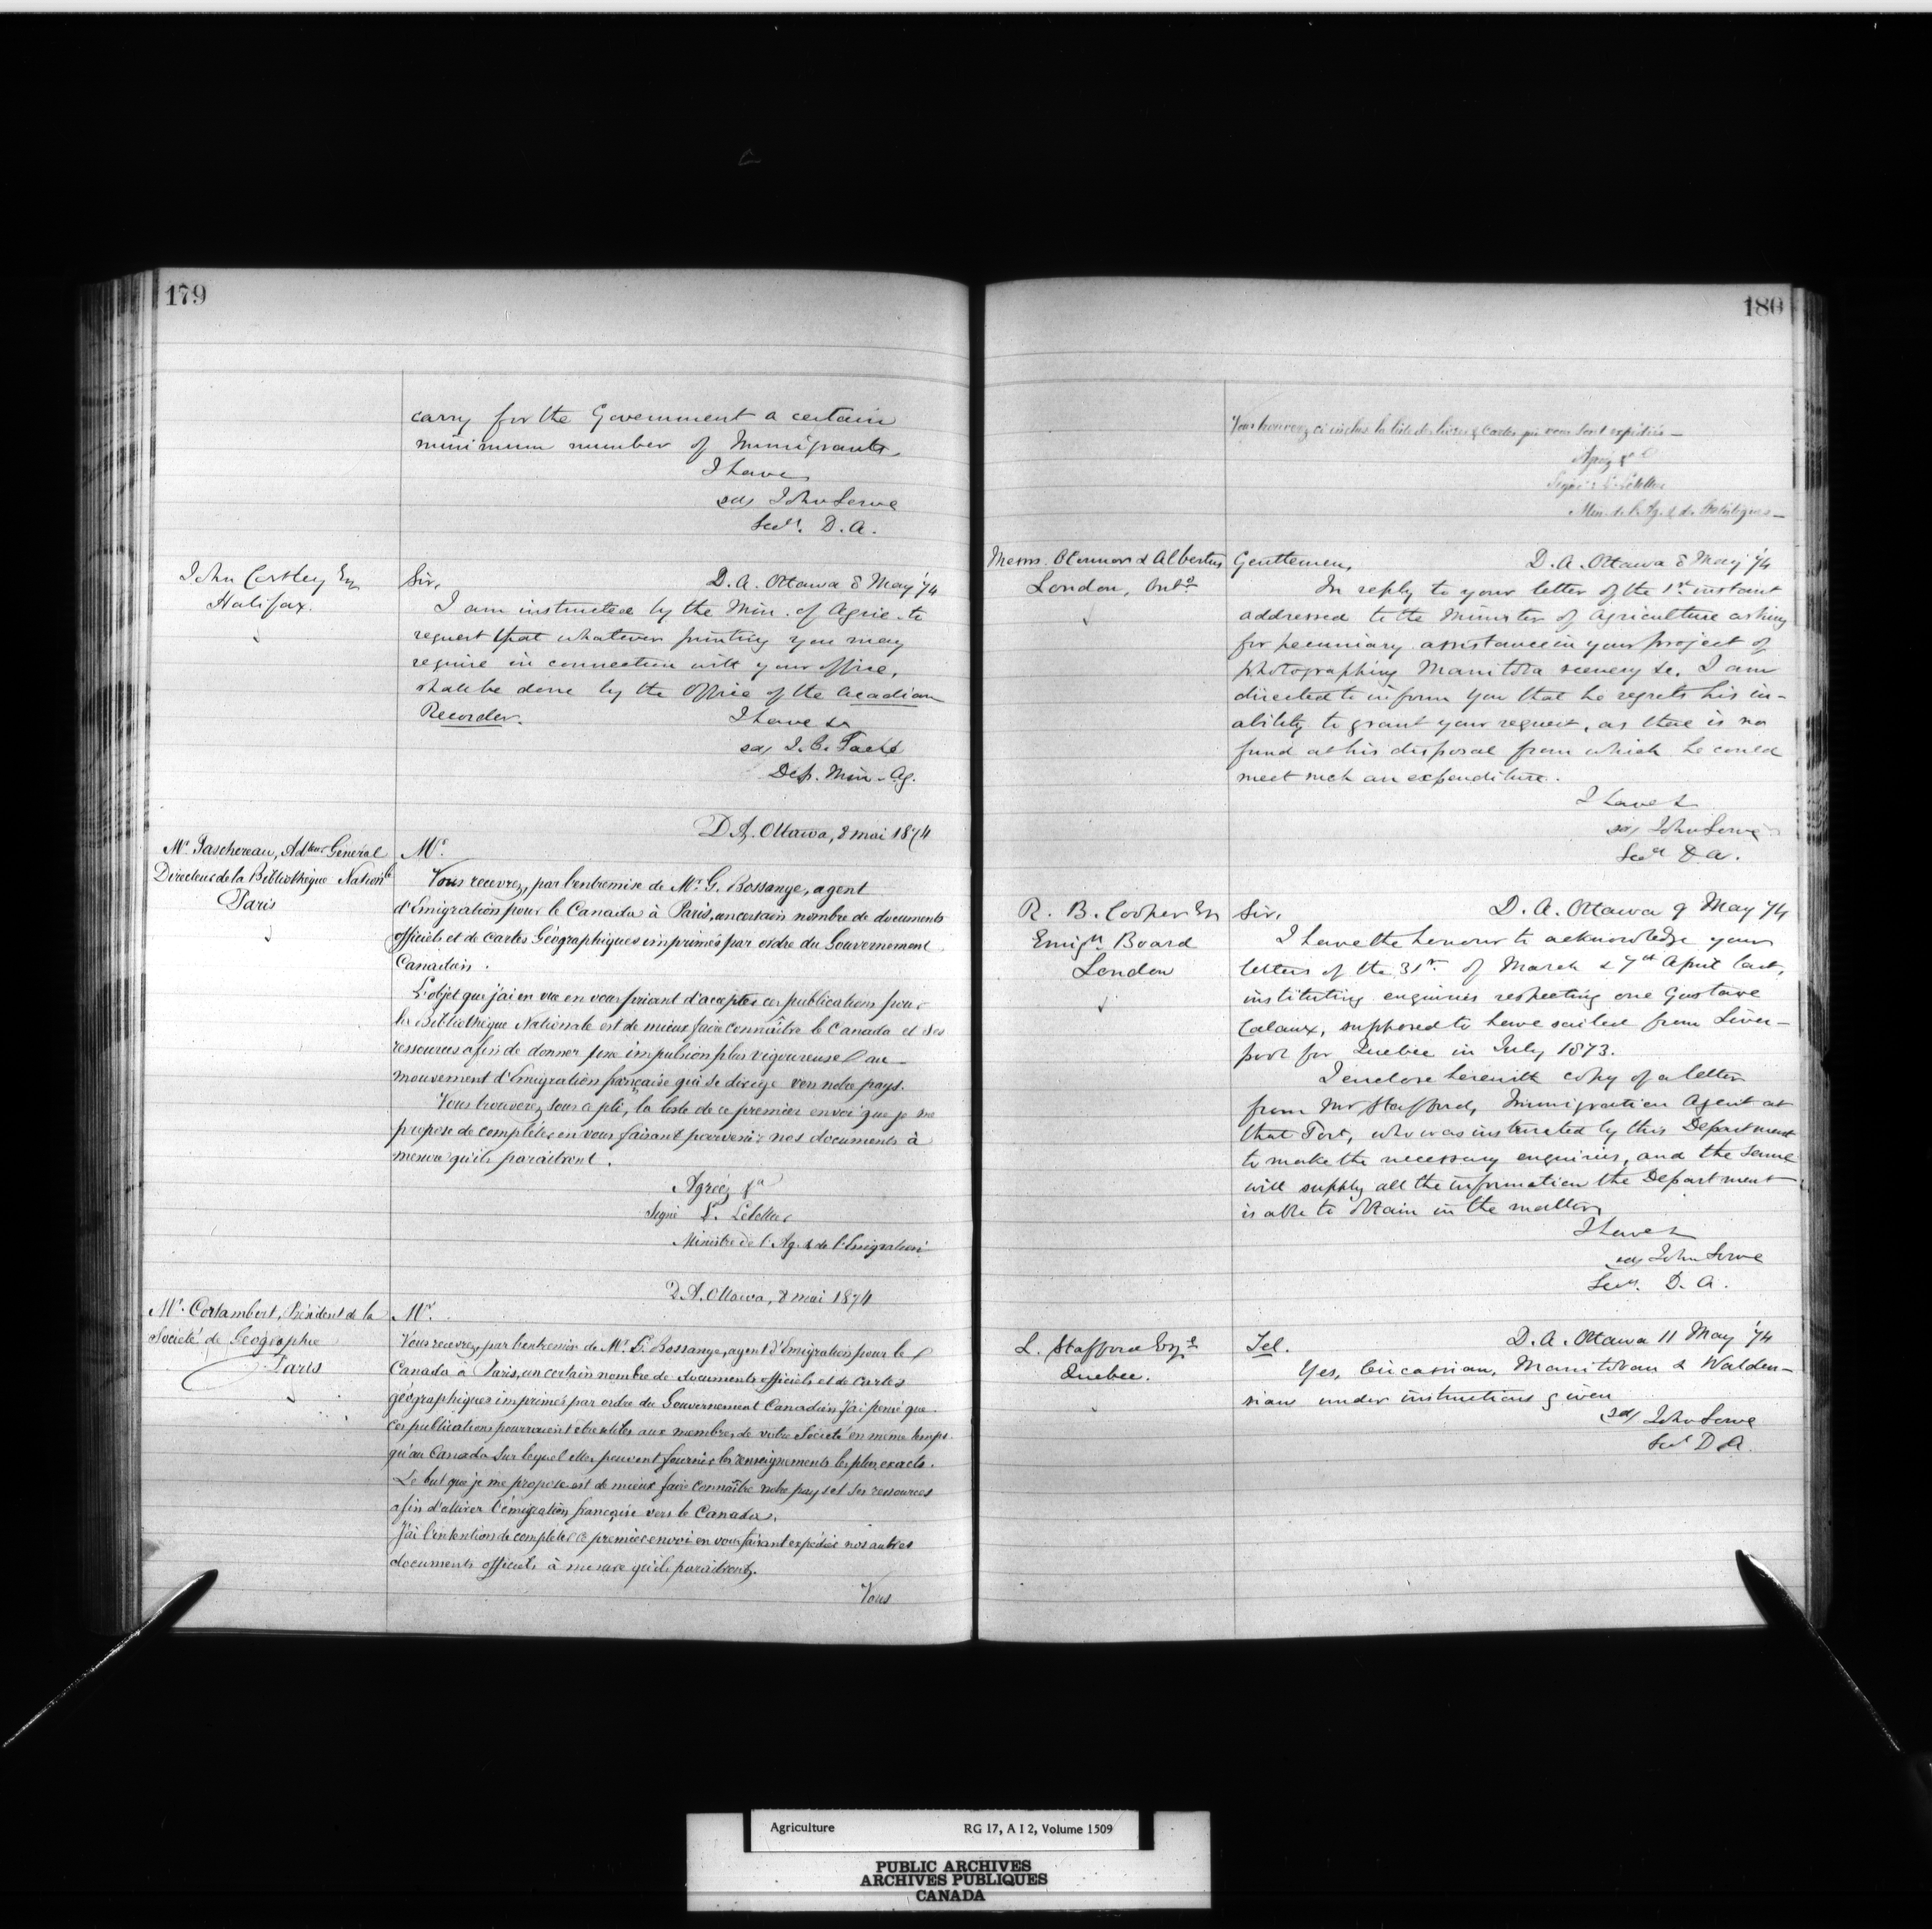 179
carry for the Government a certain
minimum number of Immigrants.
I have
sd/ John Lowe
Secy. D. A.
John Costley Esq
Halifax.
Sir,
D. A. Ottawa 8 May '74
I am instructed by the Min. of Agric. to
request that whatever printing you may
require in connection with your office,
shall be done by the Office of the Acadian
Recorder.
I have &c
sd/ J. C. Taché
Dep. Min. Ag.
D. A. Ottawa, 8 mai 1874
Mr. Taschereau, Adteur Général
Directeur de la Bibliothèque Nationle
Paris
Mr.
Vous recevrez, par l'entremise de Mr. G. Bossange, agent
d'Emigration pour le Canada à Paris, un certain nombre de documents
officiels et de cartes Géographiques imprimés par ordre du Gouvernement
Canadien.
L'objet que j'ai en vue en vous priant d'accepter ces publications pour
la Bibliothèque Nationale est de mieux faire connaître le Canada et ses
ressources afin de donner une impulsion plus vigoureuse au
mouvement d'Emigration française qui se dirige vers notre pays.
Vous trouverez sous ce pli, la liste de ce premier envoi que je me
propose de compléter en vous faisant parvenir nos documents à
mesure qu'ils paraîtront.
Agréez &a
Signé L. Letellier
Ministre de l'Ag. & de l'Emigration
D. A. Ottawa, 8 mai 1874
Mr. Cortambert, Président de la
Société de Géographie
Paris
Mr.
Vous recevrez, par l'entremise de Mr. G. Bossange, agent d'Emigration pour le
Canada à Paris, un certain nombre de documents officiels et de cartes
géographiques imprimés par ordre du Gouvernement Canadien. J'ai pensé que
ces publications pourraient être utiles aux membres de votre Société en même temps
qu'au Canada sur lequel elles peuvent fournir les renseignements les plus exacts.
Le but que je me propose est de mieux faire connaître notre pays et ses ressources
afin d'attirer l'émigration française vers le Canada.
J'ai l'intention de compléter ce premier envoi en vous faisant expédier nos autres
documents officiels à mesure qu'ils paraîtront.
Vous
180
Vous trouverez ci inclus la liste des livres & cartes qui vous sont expédiés
Agréez &a
Signé L. Letellier
Min. de l'Ag. & des Statistiques
Messrs. OConnor & Albertus
London, Onto
Gentlemen,
D. A. Ottawa 8 May '74
In reply to your letter of the 1st instant
addressed to the Minister of Agriculture asking
for pecuniary assistance in your project of
photographing Manitoba scenery &c, I am
directed to inform you that he regrets his in-
ability to grant your request, as there is no
fund at his disposal from which he could
meet such an expenditure.
I have &
sd/ John Lowe
Secy D. A.
R. B. Cooper Esq
Emign Board
London
Sir,
D. A. Ottawa 9 May '74
I have the honour to acknowledge your
letters of the 31st. of March & 7th April last,
instituting enquiries respecting one Gustave
Calaux, supposed to have sailed from Liver-
pool for Quebec in July 1873.
I enclose herewith copy of a letter
from Mr Stafford, Immigration Agent at
that Port, who was instructed by this Department
to make the necessary enquiries, and the same
will supply all the information the Department
is able to obtain in the matter.
I have &
sd/ John Lowe
Secy. D. A.
L. Stafford Esqre
Quebec.
Tel.
D. A. Ottawa 11 May '74
Yes, Circassian, Manitoban & Walden-
sian under instructions given
sd/ John Lowe
Secy D A.
Agriculture
RG 17, A I 2, Volume 1509
PUBLIC ARCHIVES
ARCHIVES PUBLIQUES
CANADA